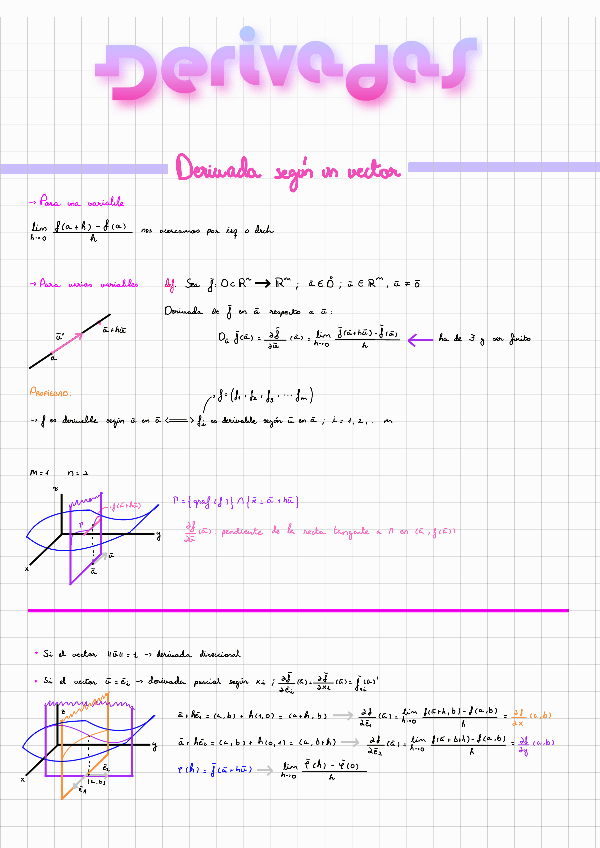 Derivadas
Derivada según un vector
→ Para una variable
lim h→0 f(a+h) - f(a) / h nos acercamos por izq o drch
→ Para varias variables def. Sea f̄: D⊂Rⁿ → Rᵐ ; ā ∈ D̊ ; ū ∈ Rⁿ, ū ≠ ō
Derivada de f̄ en ā respecto a ū:
D_ū f̄(ā) = ∂f̄/∂ū (ā) = lim h→0 f̄(ā+hū) - f̄(ā) / h ← ha de ∃ y ser finito
ū
ā+hū
a
PROPIEDAD:
f̄ = (f₁, f₂, f₃, ... fₘ)
→ f es derivable según ū en ā ⟺ fᵢ es derivable según ū en ā ; i = 1, 2, .. m
m=1 n=2
z
f(ā+hū)
Γ
Γ = {graf(f)} ∩ {x̄ = ā+hū}
∂f/∂ū (ā): pendiente de la recta tangente a Γ en (ā, f(ā))
y
ū
ā
x
• Si el vector ||ū|| = 1 → derivada direccional
• Si el vector ū = ēᵢ → derivada parcial según xᵢ ; ∂f̄/∂ēᵢ (ā) = ∂f̄/∂xᵢ (ā) = f̄ₓᵢ(ā)'
z
ā + hē₁ = (a,b) + h(1,0) = (a+h, b) → ∂f/∂ē₁ (ā) = lim h→0 f(a+h,b) - f(a,b) / h = ∂f/∂x (a,b)
ā + hē₂ = (a,b) + h(0,1) = (a, b+h) → ∂f/∂ē₂ (ā) = lim h→0 f(a, b+h) - f(a,b) / h = ∂f/∂y (a,b)
y
φ(h) = f̄(ā+hū) → lim h→0 φ̄(h) - φ̄(0) / h
x
ē₂
(a,b)
ē₁